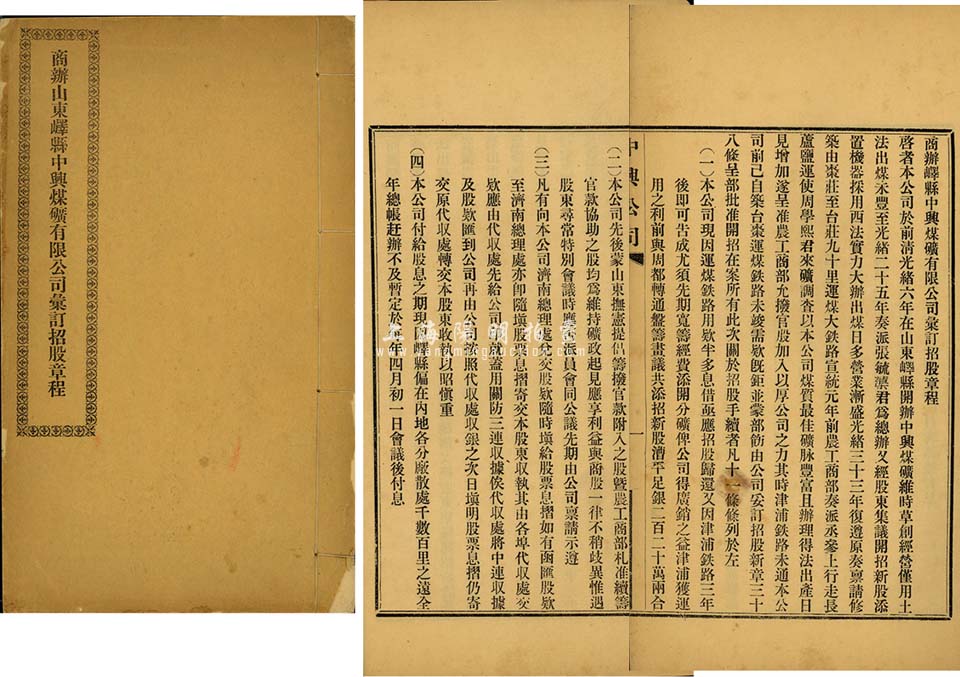 商辦山東嶧縣中興煤礦有限公司彙訂招股章程
商辦嶧縣中興煤礦有限公司彙訂招股章程
啓者本公司於前清光緒六年在山東嶧縣開辦中興煤礦維時草創經營僅用土
法出煤未豐至光緒二十五年奏派張毓蕖君爲總辦又經股東集議開招新股添
置機器採用西法實力大辦出煤日多營業漸盛光緒三十三年復遵原奏稟請修
築由棗莊至台莊九十里運煤大鉄路宣統元年前農工商部奏派丞參上行走長
蘆鹽運使周學熙君來礦調查以本公司煤質最佳礦脉豐富且辦理得法出產日
見增加遂呈准農工商部允撥官股加入以厚公司之力其時津浦鉄路未通本公
司前已自築台棗運煤鉄路未竣需欵旣鉅並蒙部飭由公司妥訂招股新章三十
八條呈部批准開招在案所有此次關於招股手續者凡十一條條列於左
(一)本公司現因運煤鉄路用欵半多息借亟應招股歸還又因津浦鉄路三年
後即可告成尤須先期寬籌經費添開分礦俾公司得廣銷之益津浦獲運
用之利前與周都轉通盤籌畫議共添招新股漕平足銀二百二十萬兩合
中興公司
一
(二)本公司先後蒙山東撫憲提倡籌撥官款附入之股曁農工商部札准續籌
官款協助之股均爲維持礦政起見應享利益與商股一律不稍歧異惟遇
股東尋常特別會議時應派員會同公議先期由公司稟請示遵
(三)凡有向本公司濟南總理處兌交股欵隨時塡給股票息摺如有函匯股欵
至濟南總理處亦卽隨塡股票息摺寄交本股東收執其由各埠代收處交
欵應由代收處先給公司印就蓋用關防三連收據俟代收處將中連收據
及股欵匯到公司再由公司按照代收處收銀之次日塡明股票息摺仍寄
交原代收處轉交本股東收執以昭愼重
(四)本公司付給股息之期現因嶧縣偏在內地各分廠散處千數百里之遠全
年總帳赶辦不及暫定於每年四月初一日會議後付息
上海陽明拍賣